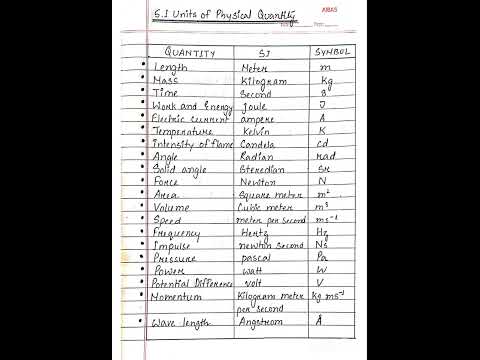 S.I Units of Physical Quantity
QUANTITY SI SYMBOL
Length Meter m
Mass Kilogram Kg
Time Second S
Work and Energy joule J
Electric current ampere A
Temperature Kelvin K
Intensity of flame Candela cd
Angle Radian rad
Solid angle Steredian Sr
Force Newton N
Area Square meter m²
Volume Cubic meter m³
Speed meter per second ms⁻¹
Frequency Hertz Hz
Impulse newton second Ns
Pressure pascal Pa
Power watt W
Potential Difference volt V
Momentum Kilogram meter per second Kg ms⁻¹
Wave length Angstrom Å